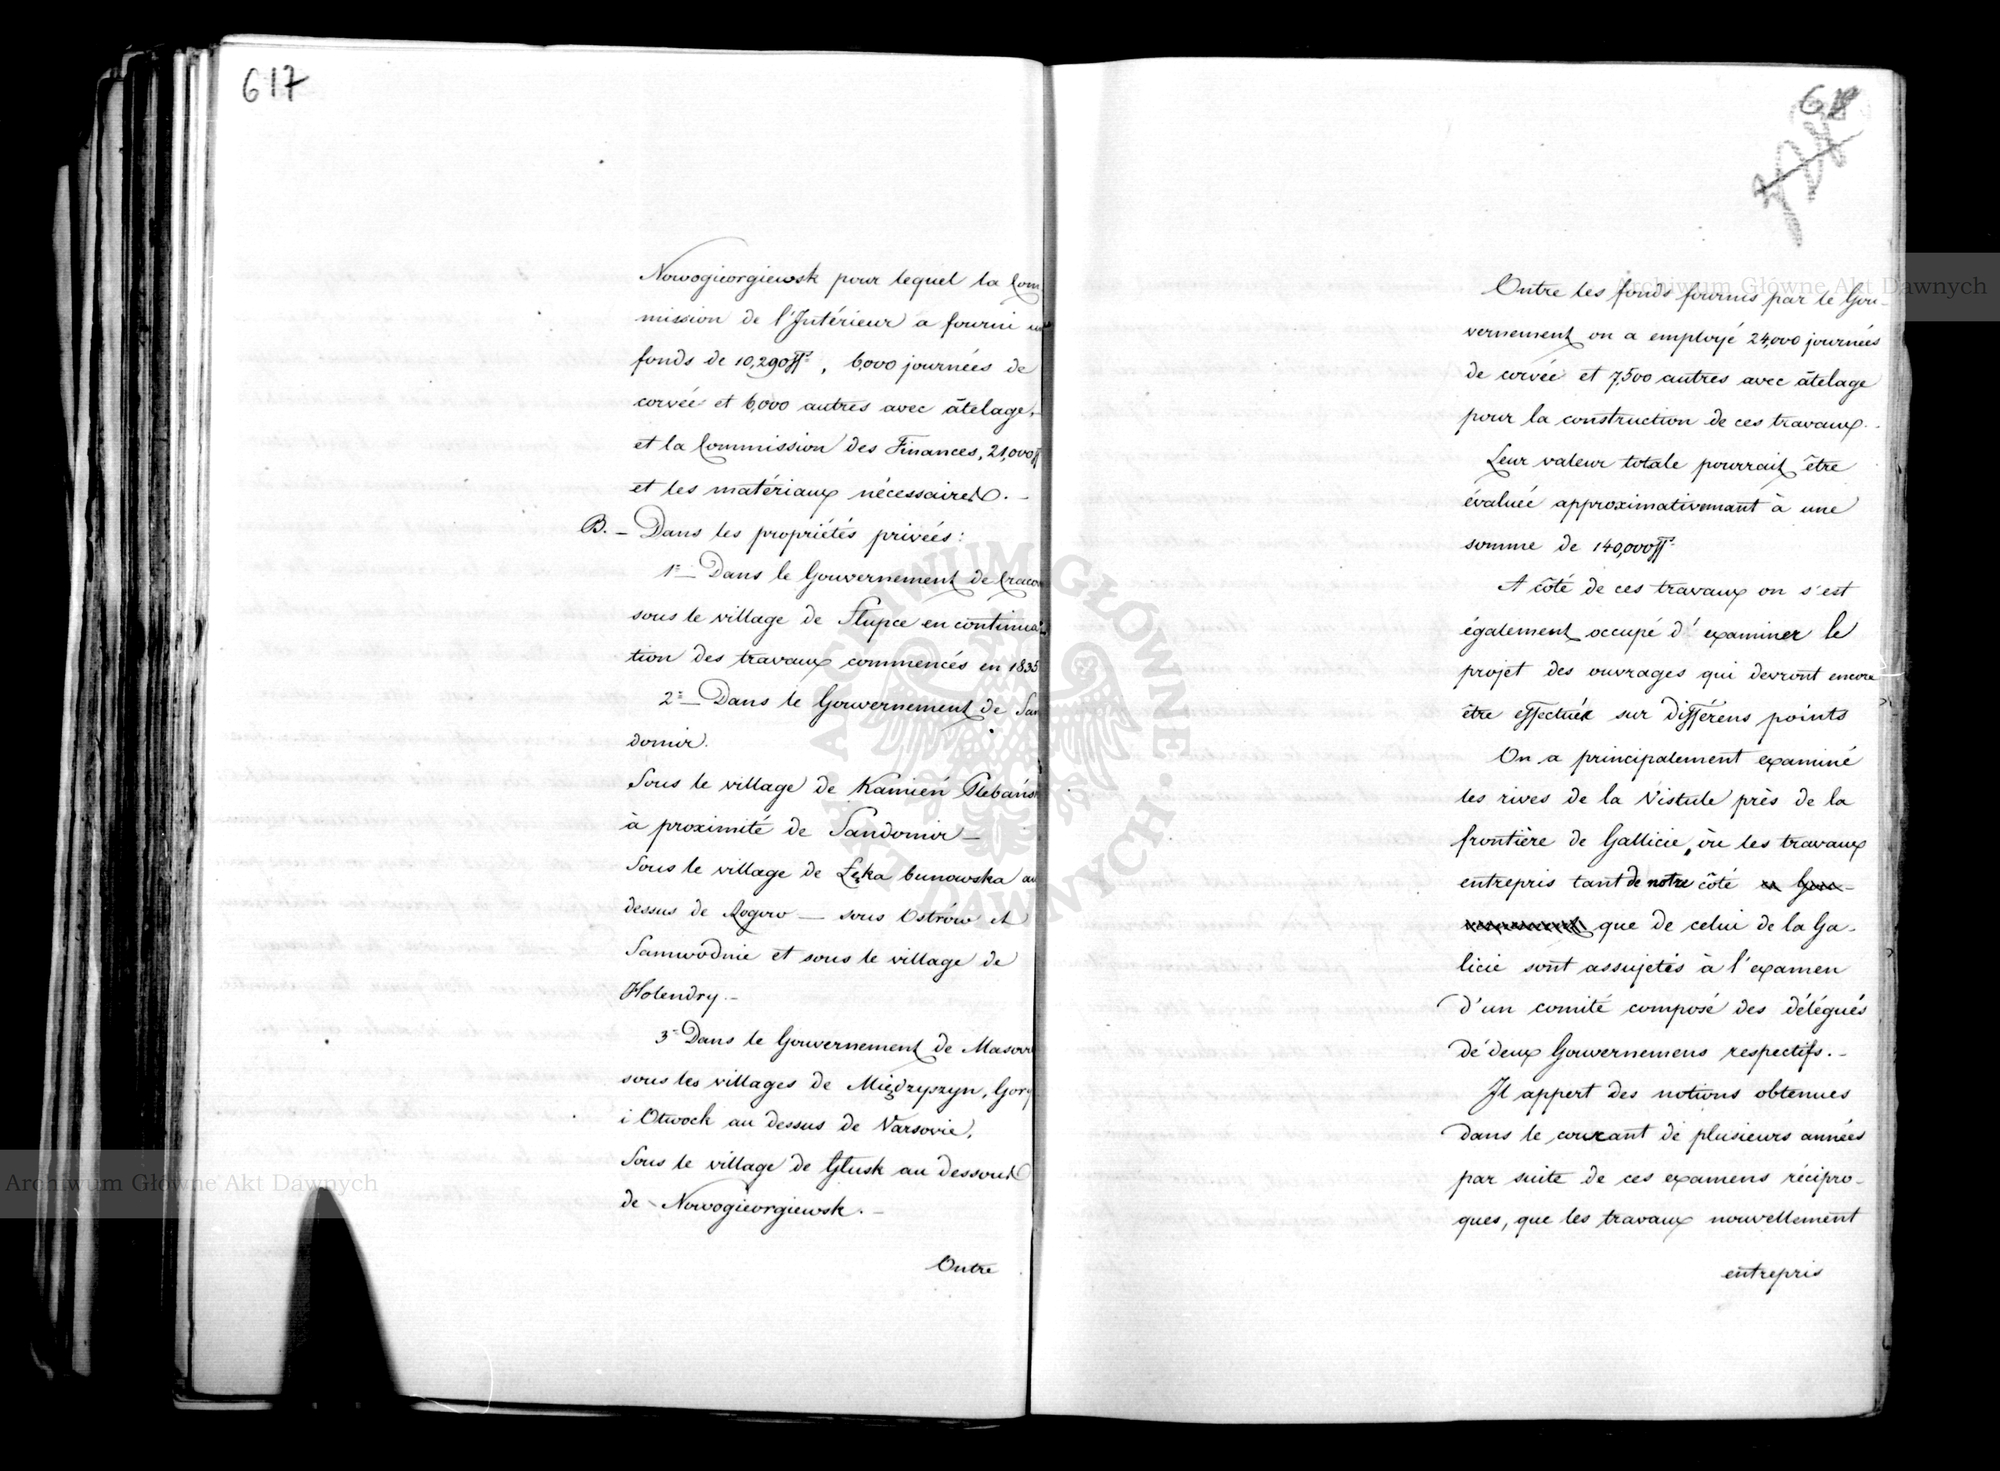 617
Nowogieorgiewsk pour lequel la Com
mission de l'Intérieur a fourni un
fonds de 10,290 fl., 6,000 journées de
corvée et 6,000 autres avec âtelage,
et la Commission des Finances, 21,000 f
et les matériaux nécessaires. –
B. – Dans les propriétés privées:
1° – Dans le Gouvernement de Craco
sous le village de Słupce en continua
tion des travaux commencés en 1835
2° – Dans le Gouvernement de San
domir.
Sous le village de Kamień Plebańs
à proximité de Sandomir –
Sous le village de Łęka bunowska au
dessus de Rogow – sous Ostrów et
Samwodnie et sous le village de
Holendry. –
3° Dans le Gouvernement de Masovi
sous les villages de Międzyrzyn, Gory
i Otwock au dessus de Varsovie,
Sous le village de Głusk au dessous
de Nowogieorgiewsk. –
Outre
618
Outre les fonds fournis par le Gou-
vernement on a employé 24,000 journées
de corvée et 7,500 autres avec âtelage
pour la construction de ces travaux.
Leur valeur totale pourrait être
évaluée approximativemant à une
somme de 140,000 fl.
A côté de ces travaux on s'est
également occupé d'examiner le
projet des ouvrages qui devront encore
être effectués sur différens points
On a principalement examiné
les rives de la Vistule près de la
frontière de Gallicie, où les travaux
entrepris tant de notre côté
que de celui de la Ga-
licie sont assujetés à l'examen
d'un comité composé des délégués
de deux Gouvernemens respectifs. –
Il appert des notions obtenues
dans le courant de plusieurs années
par suite de ces examens récipro-
ques, que les travaux nouvellement
entrepris
Archiwum Główne Akt Dawnych
Archiwum Główne Akt Dawnych
ARCHIWUM GŁÓWNE AKT DAWNYCH